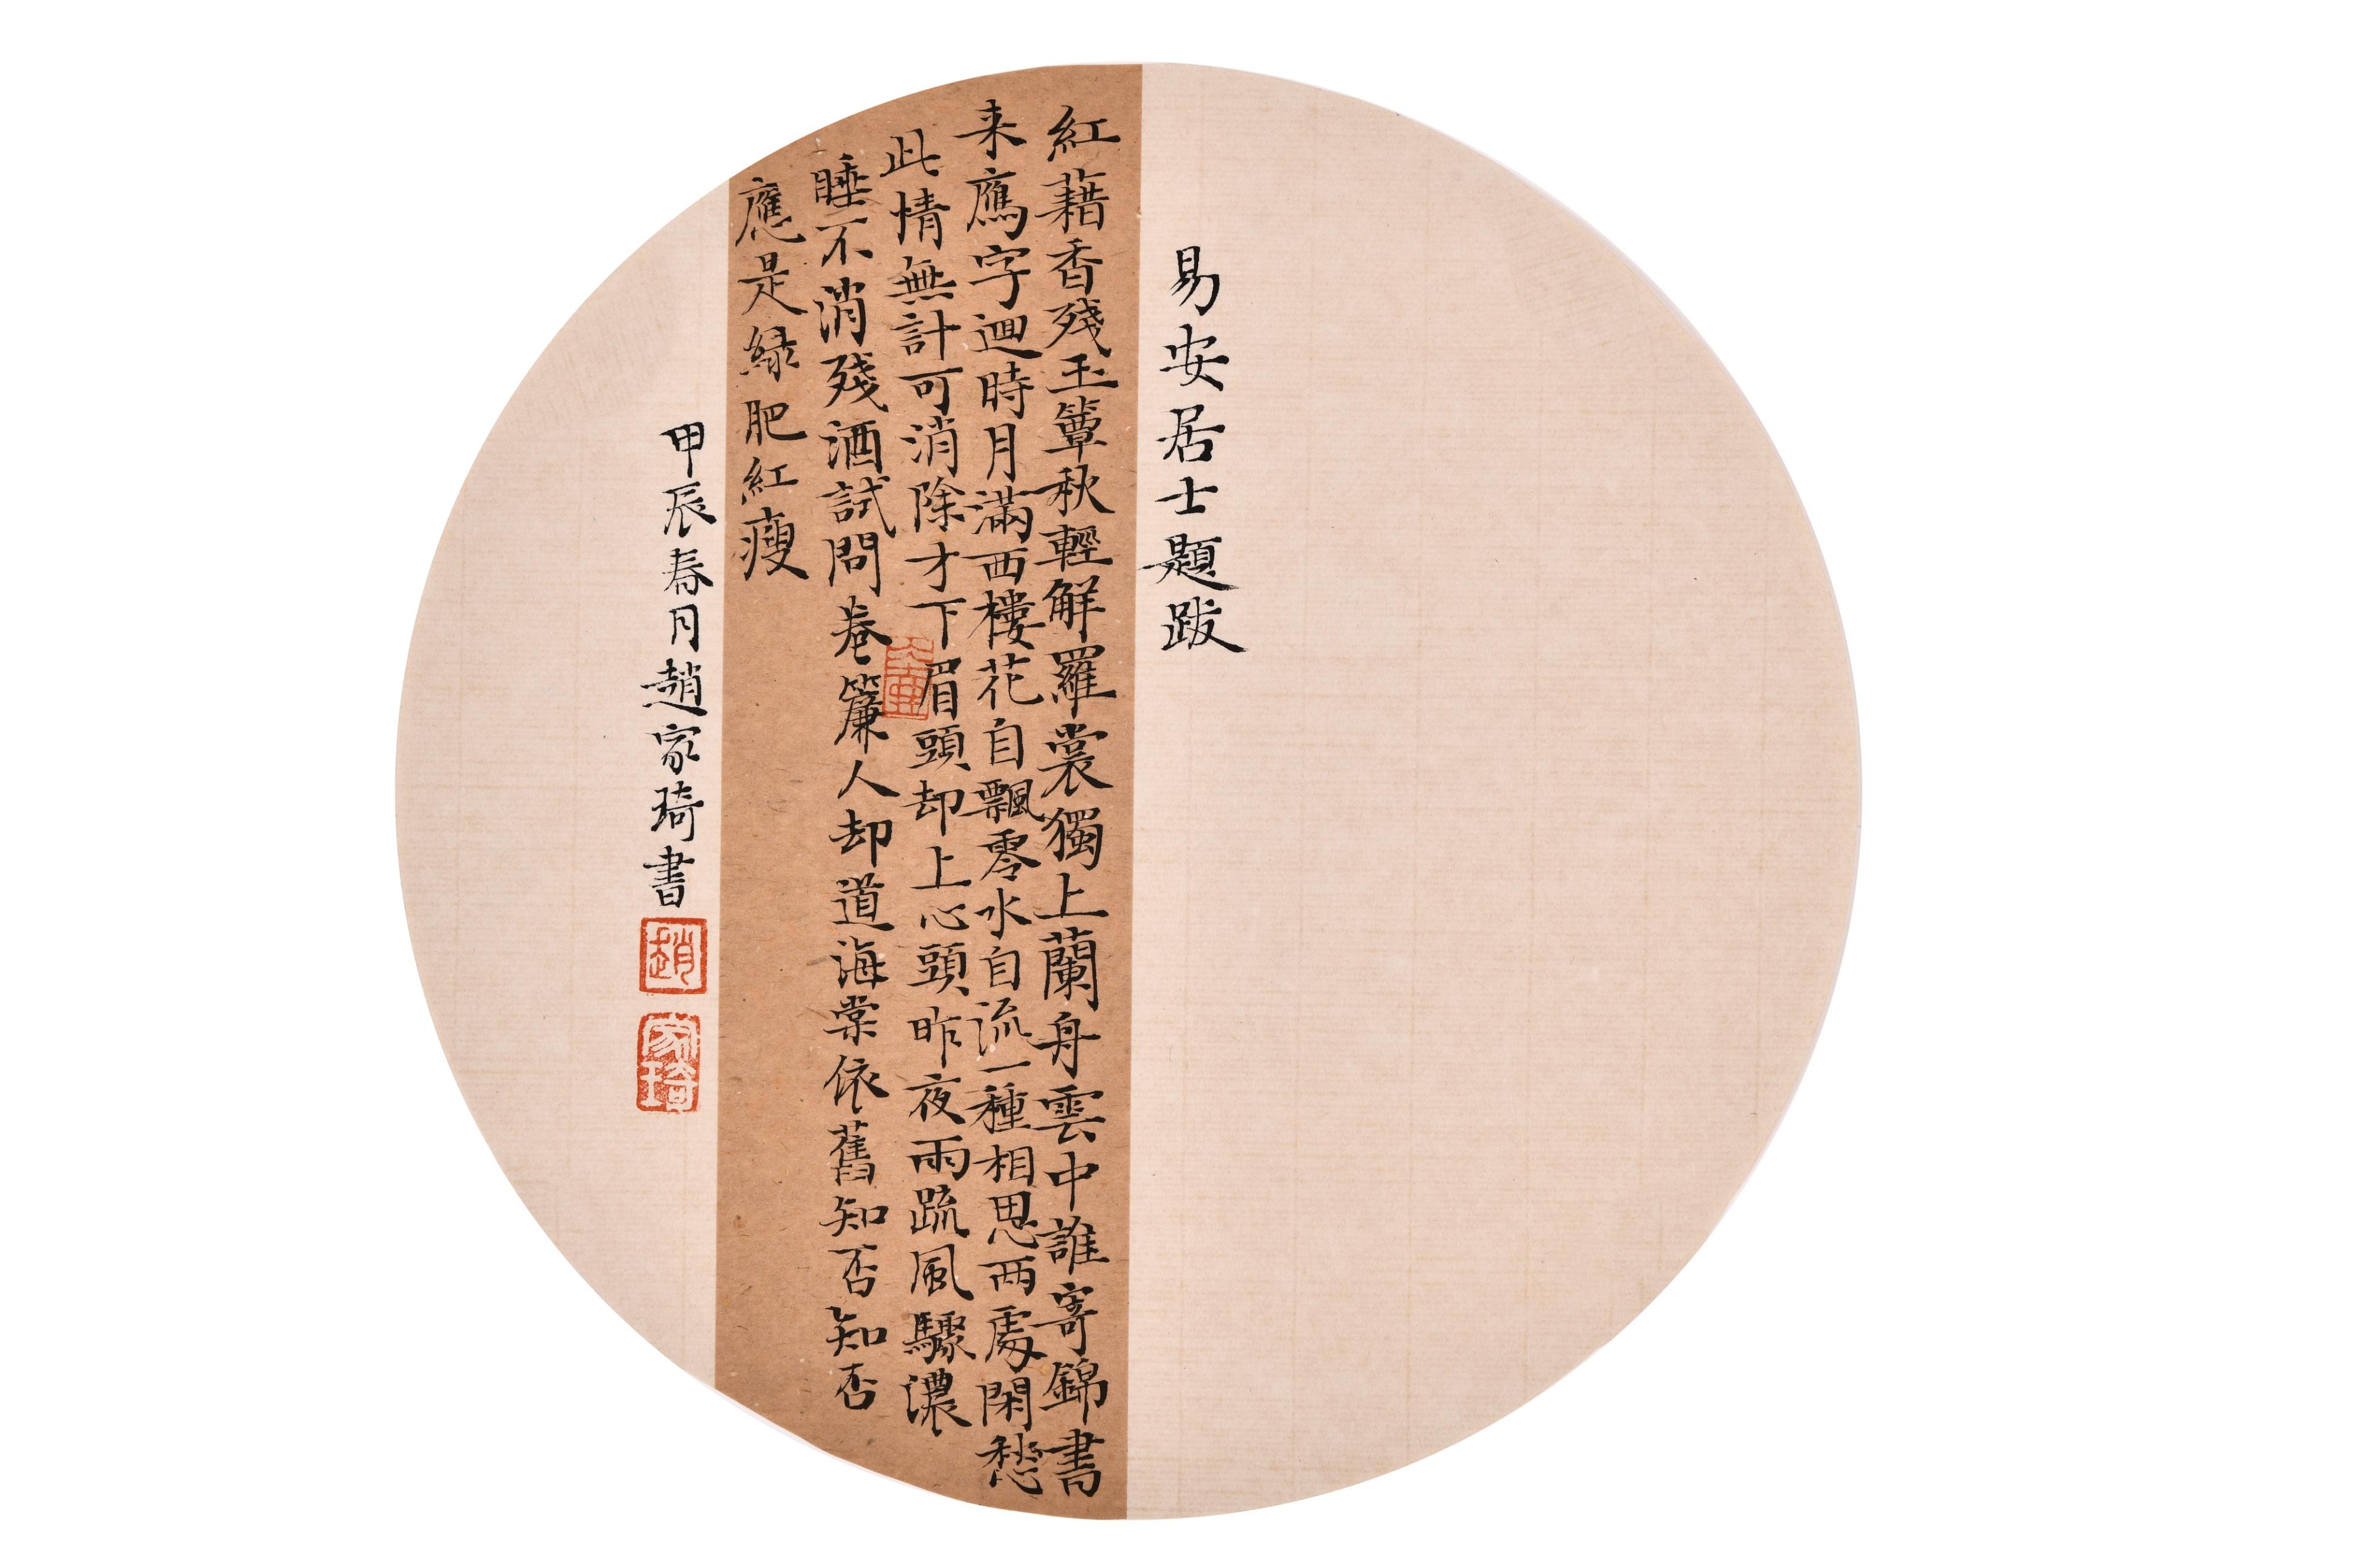 易安居士題跋
紅藕香殘玉簟秋輕解羅裳獨上蘭舟雲中誰寄錦書
来鴈字迴時月滿西樓花自飄零水自流一種相思兩處閑愁
此情無計可消除才下眉頭却上心頭昨夜雨疏風驟濃
睡不消殘酒試問卷簾人却道海棠依舊知否知否
應是緑肥紅瘦
甲辰春月趙家琦書
趙
家琦